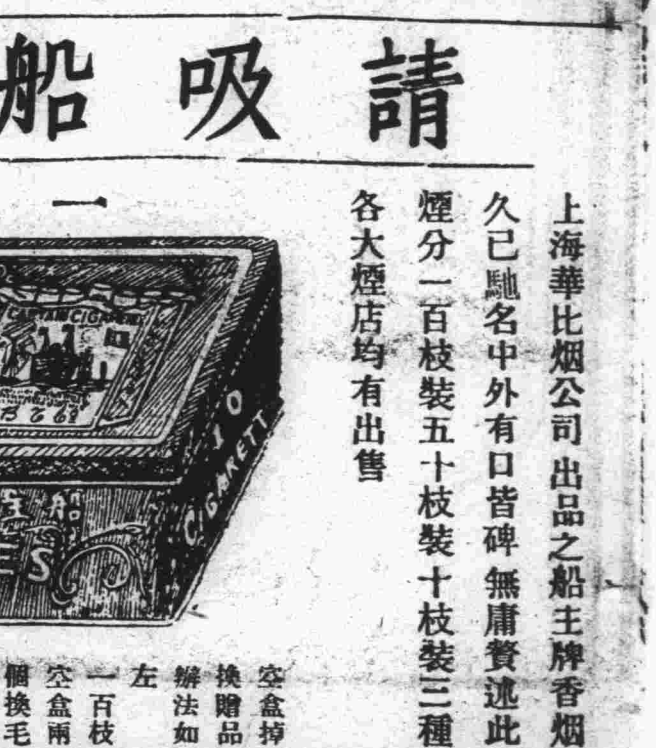 請吸船
上海華比烟公司出品之船主牌香烟
久已馳名中外有口皆碑無庸贅述此
煙分一百枝裝五十枝裝十枝裝三種
各大煙店均有出售
一
CAPTAIN CIGARETTES
船主
ES
10
CIGARETT
空盒掉
換贈品
辦法如
左
一百枝
空盒兩
個換毛